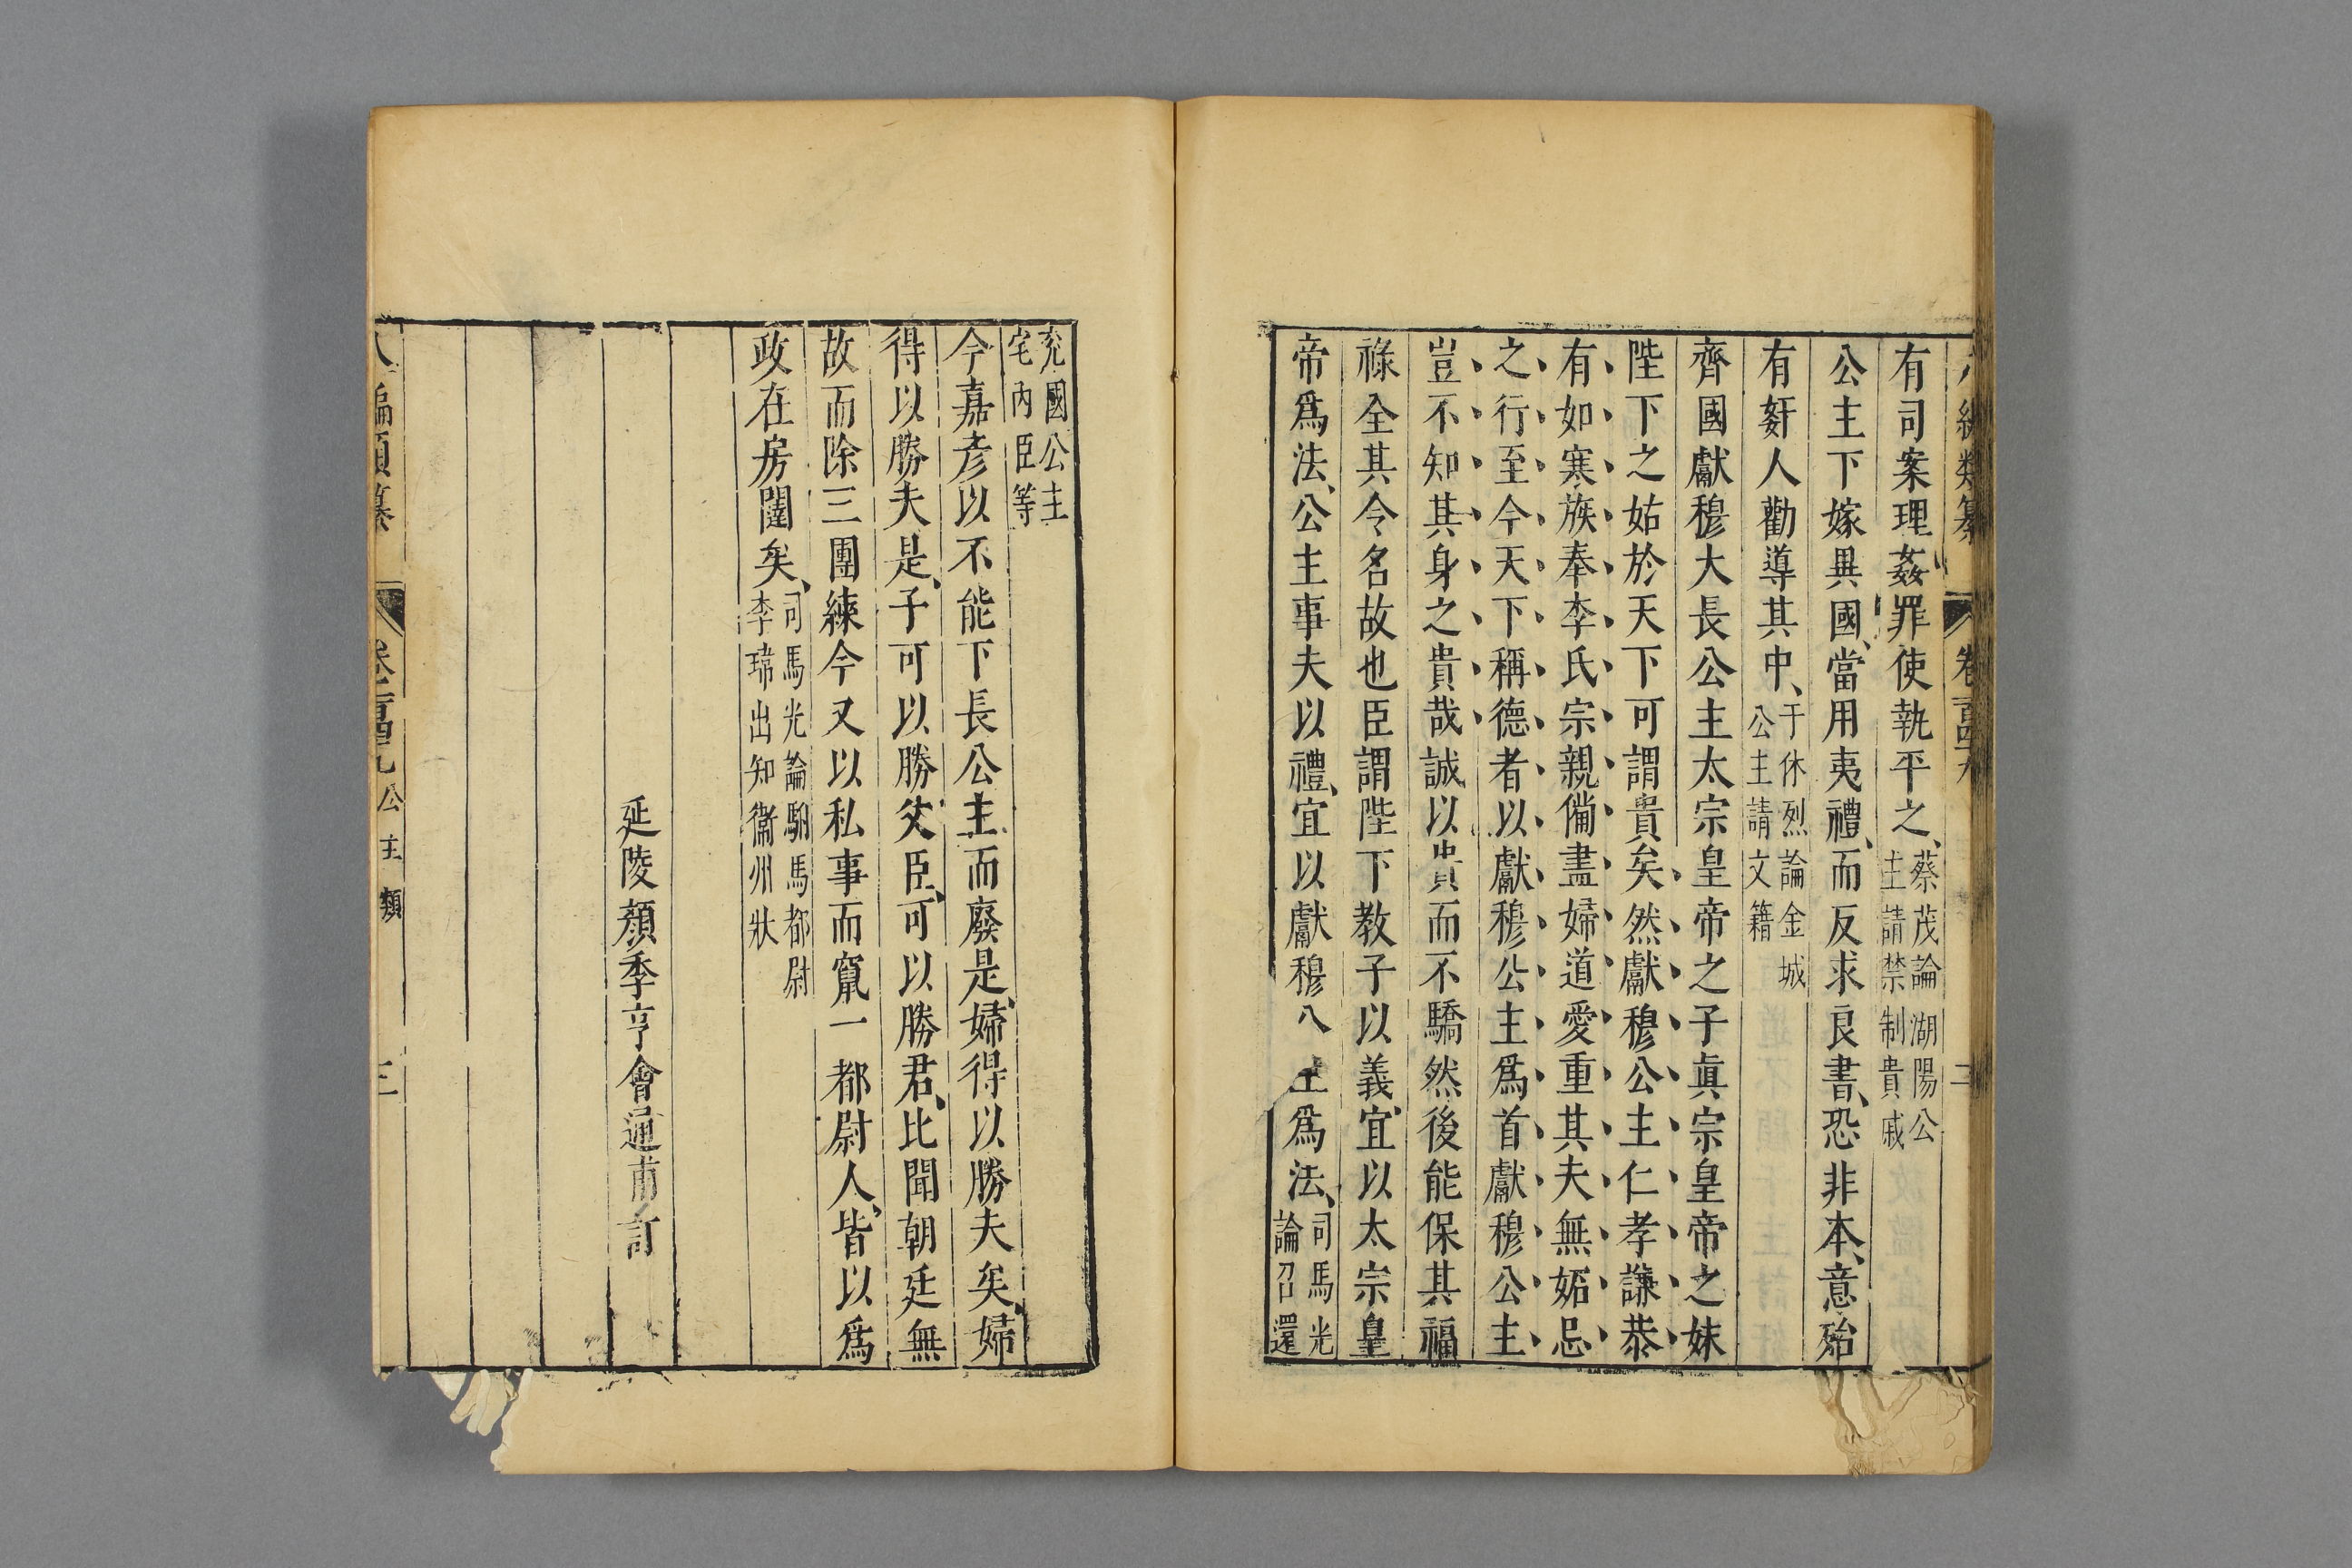 編類纂 卷一百四十九 二
有司案理姦罪使執平之蔡茂論湖陽公主請禁制貴戚
公主下嫁異國當用夷禮而反求良書恐非本意殆
有姧人勸導其中于休烈論金城公主請文籍
齊國獻穆大長公主太宗皇帝之子眞宗皇帝之妹
陛下之姑於天下可謂貴矣然獻穆公主仁孝謙恭
有如寒族奉李氏宗親備盡婦道愛重其夫無妬忌
之行至今天下稱德者以獻穆公主爲首獻穆公主
豈不知其身之貴哉誠以貴而不驕然後能保其福
祿全其令名故也臣謂陛下教子以義宜以太宗皇
帝爲法公主事夫以禮宜以獻穆公主爲法司馬光論召還
兖國公主宅內臣等
今嘉彥以不能下長公主而廢是婦得以勝夫矣婦
得以勝夫是子可以勝父臣可以勝君比聞朝廷無
故而除三團練今又以私事而竄一都尉人皆以爲
政在房闥矣司馬光論駙馬都尉李瑋出知衞州狀
延陵顏季亨會通甫訂
八編類纂 卷一百四十九 公主類 三